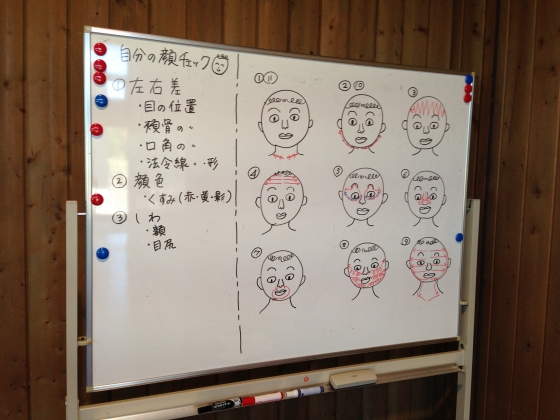 自分の顔チェック
① 左右差
・目の位置
・頬骨の〃
・口角の〃
・法令線・・形
② 顔色
・くすみ(赤・黄・影)
③ しわ
・額
・目尻
① ⑪
② ⑩
③
④
⑤
⑥
⑦
⑧
⑨